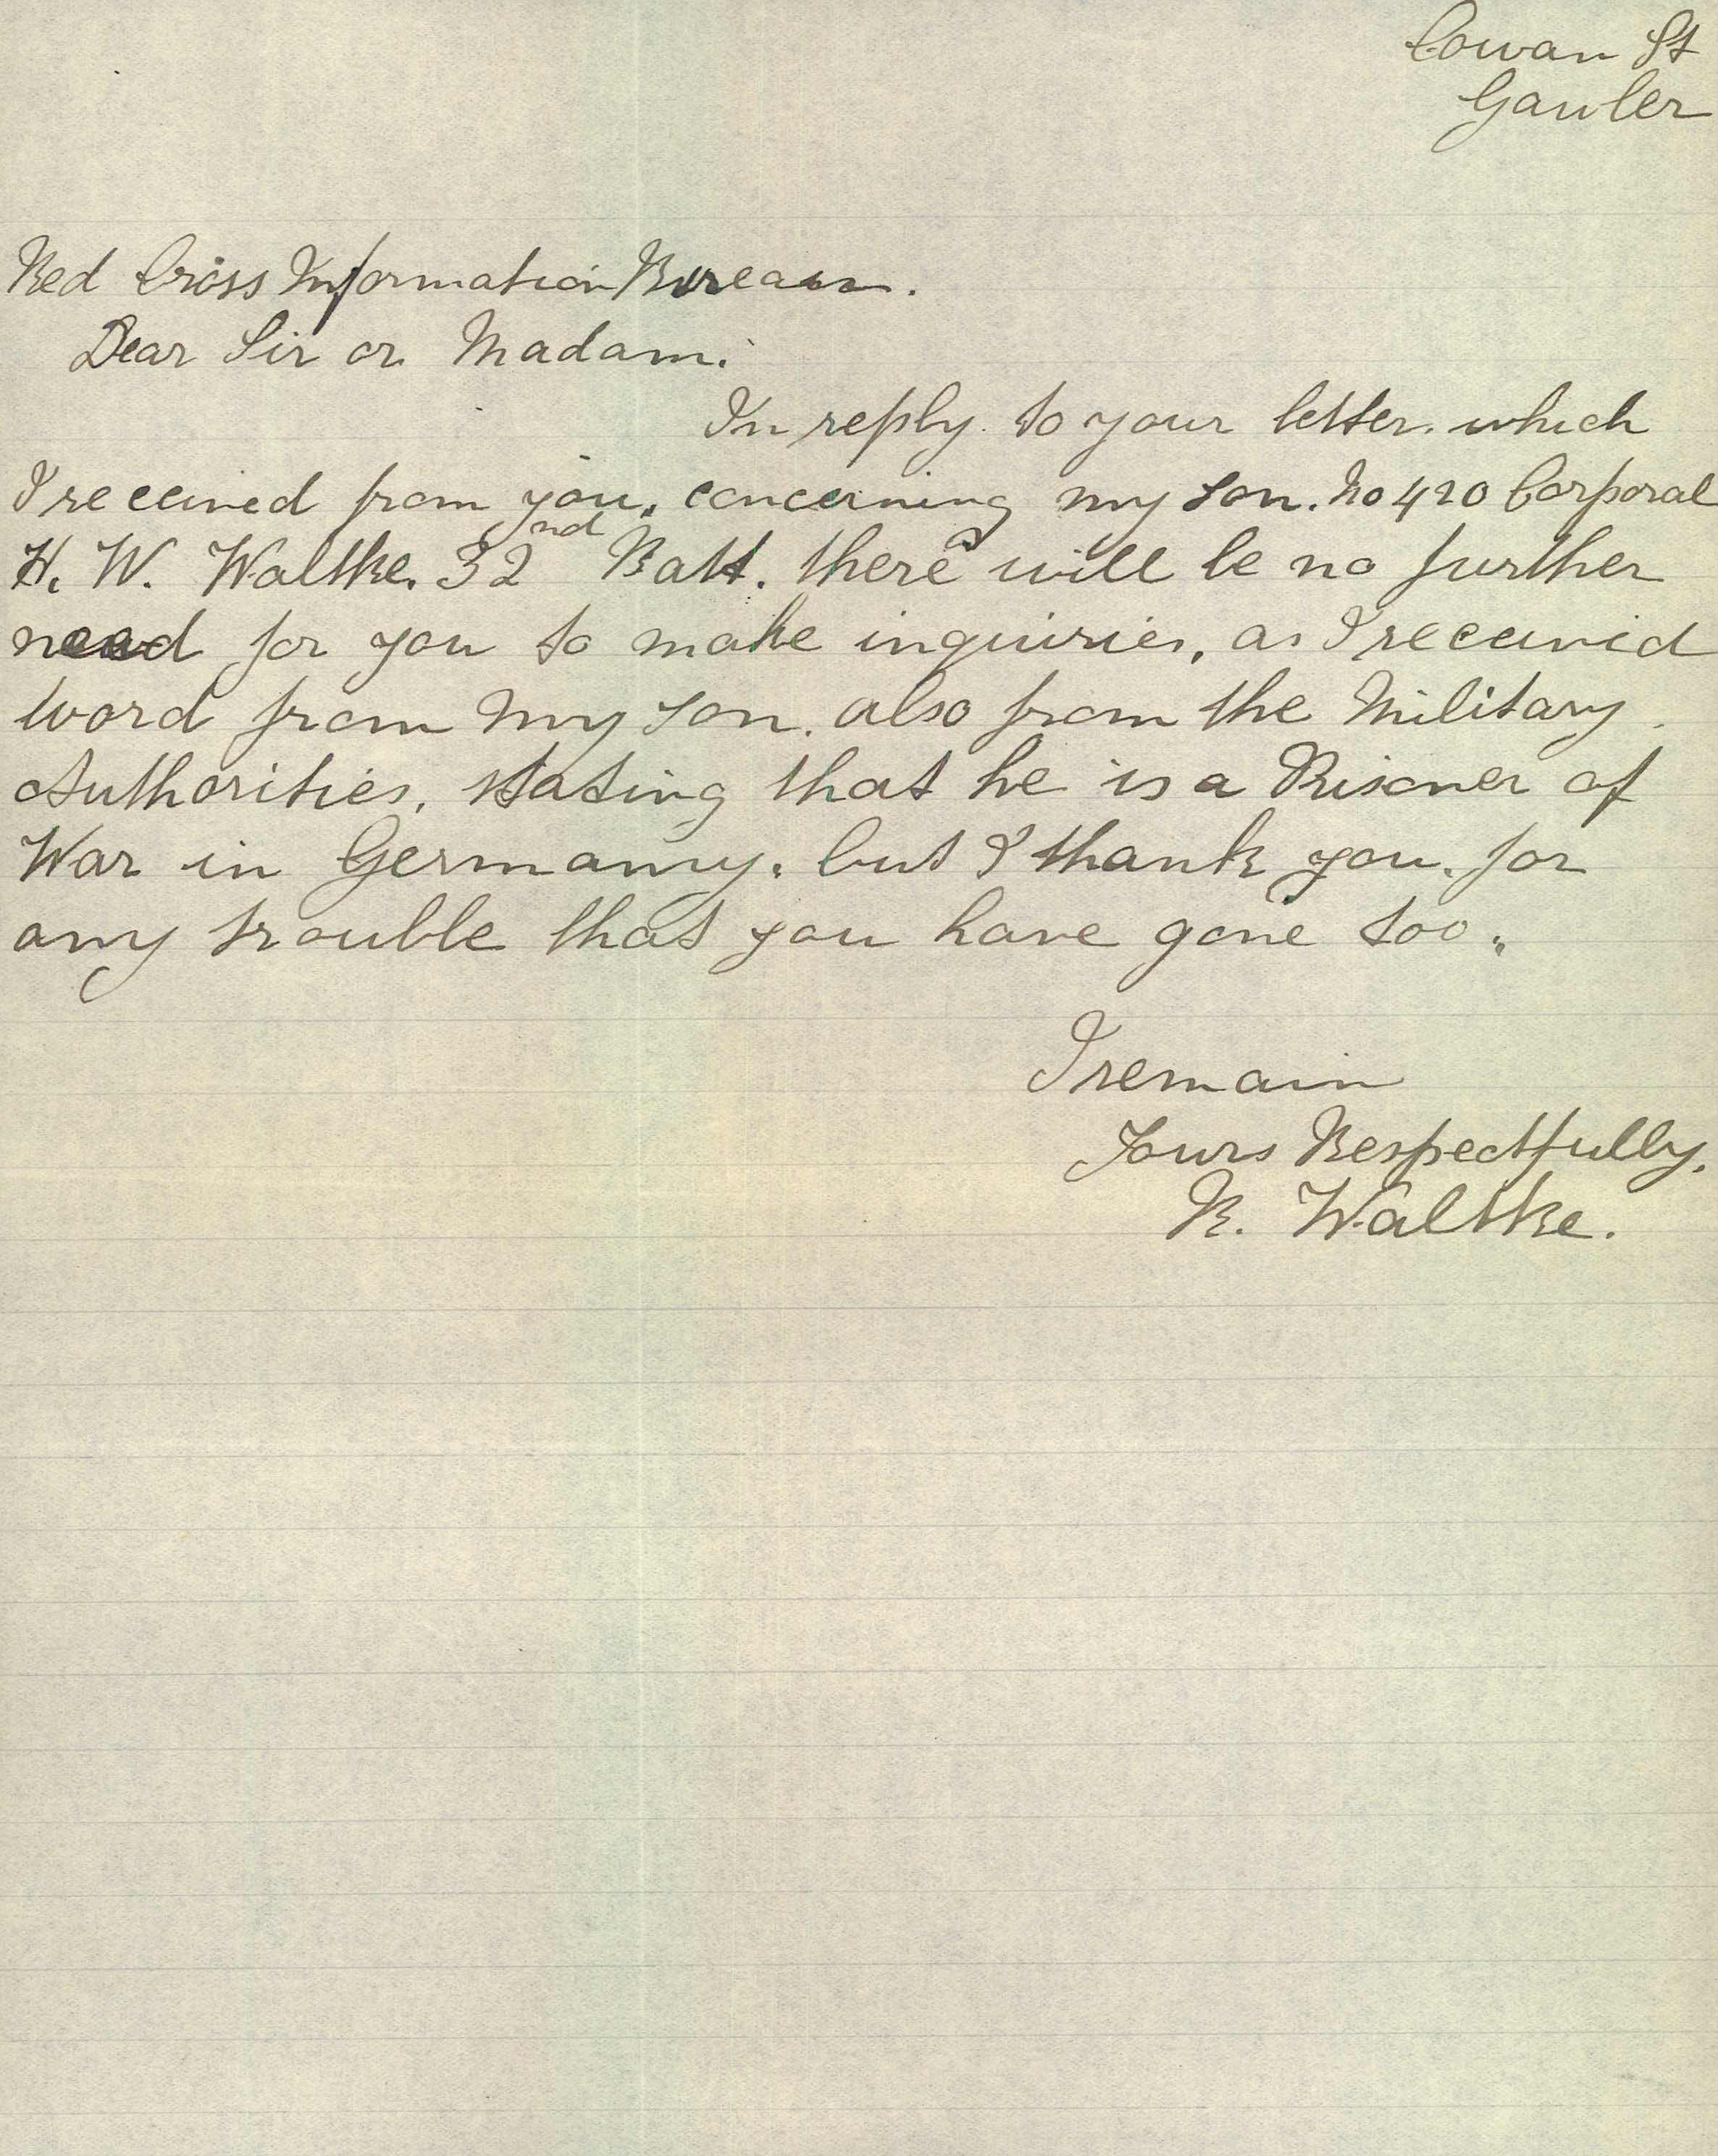 Cowan St
Gawler
Red Cross Information Bureau.
Dear Sir or Madam.
In reply. to your letter. which
I received from you. concerning my son. No 420 Corporal
H. W. Waltke. 32nd Batt. there will be no further
need for you to make inquiries, as I received
word from my son. also from the Military
Authorities, stating that he is a Prisoner of
War in Germany. but I thank you. for
any trouble that you have gone too.
I remain
Yours Respectfully.
R. Waltke.